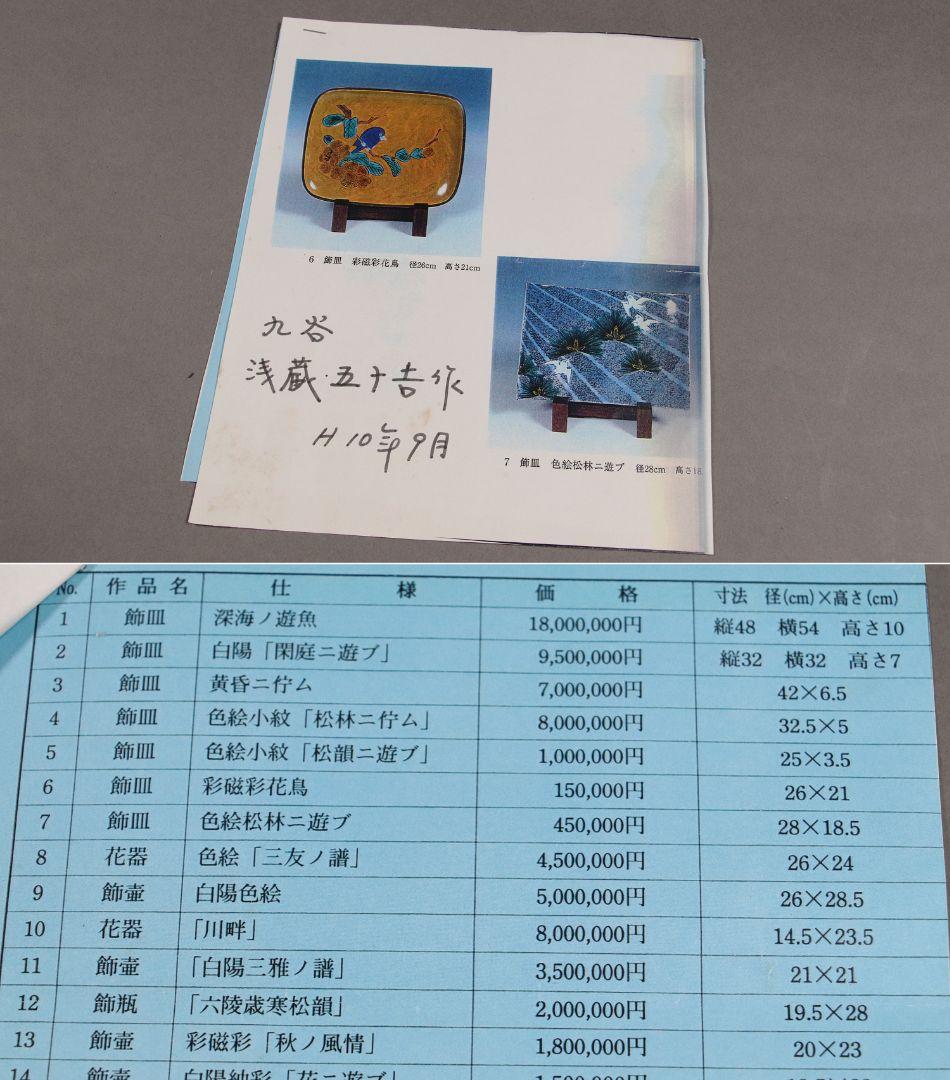 6 飾皿 彩磁彩花鳥 径26cm 高さ21cm
九谷
浅蔵・五十吉作
H10年9月
7 飾皿 色絵松林ニ遊ブ 径28cm 高さ18.
No. 作品名 仕様 価格 寸法 径(cm)×高さ(cm)
1 飾皿 深海ノ遊魚 18,000,000円 縦48 横54 高さ10
2 飾皿 白陽「閑庭ニ遊ブ」 9,500,000円 縦32 横32 高さ7
3 飾皿 黄昏ニ佇ム 7,000,000円 42×6.5
4 飾皿 色絵小紋「松林ニ佇ム」 8,000,000円 32.5×5
5 飾皿 色絵小紋「松韻ニ遊ブ」 1,000,000円 25×3.5
6 飾皿 彩磁彩花鳥 150,000円 26×21
7 飾皿 色絵松林ニ遊ブ 450,000円 28×18.5
8 花器 色絵「三友ノ譜」 4,500,000円 26×24
9 飾壷 白陽色絵 5,000,000円 26×28.5
10 花器 「川畔」 8,000,000円 14.5×23.5
11 飾壷 「白陽三雅ノ譜」 3,500,000円 21×21
12 飾瓶 「六陵歳寒松韻」 2,000,000円 19.5×28
13 飾壷 彩磁彩「秋ノ風情」 1,800,000円 20×23
14 飾壷 白陽釉彩「花ニ遊ブ」